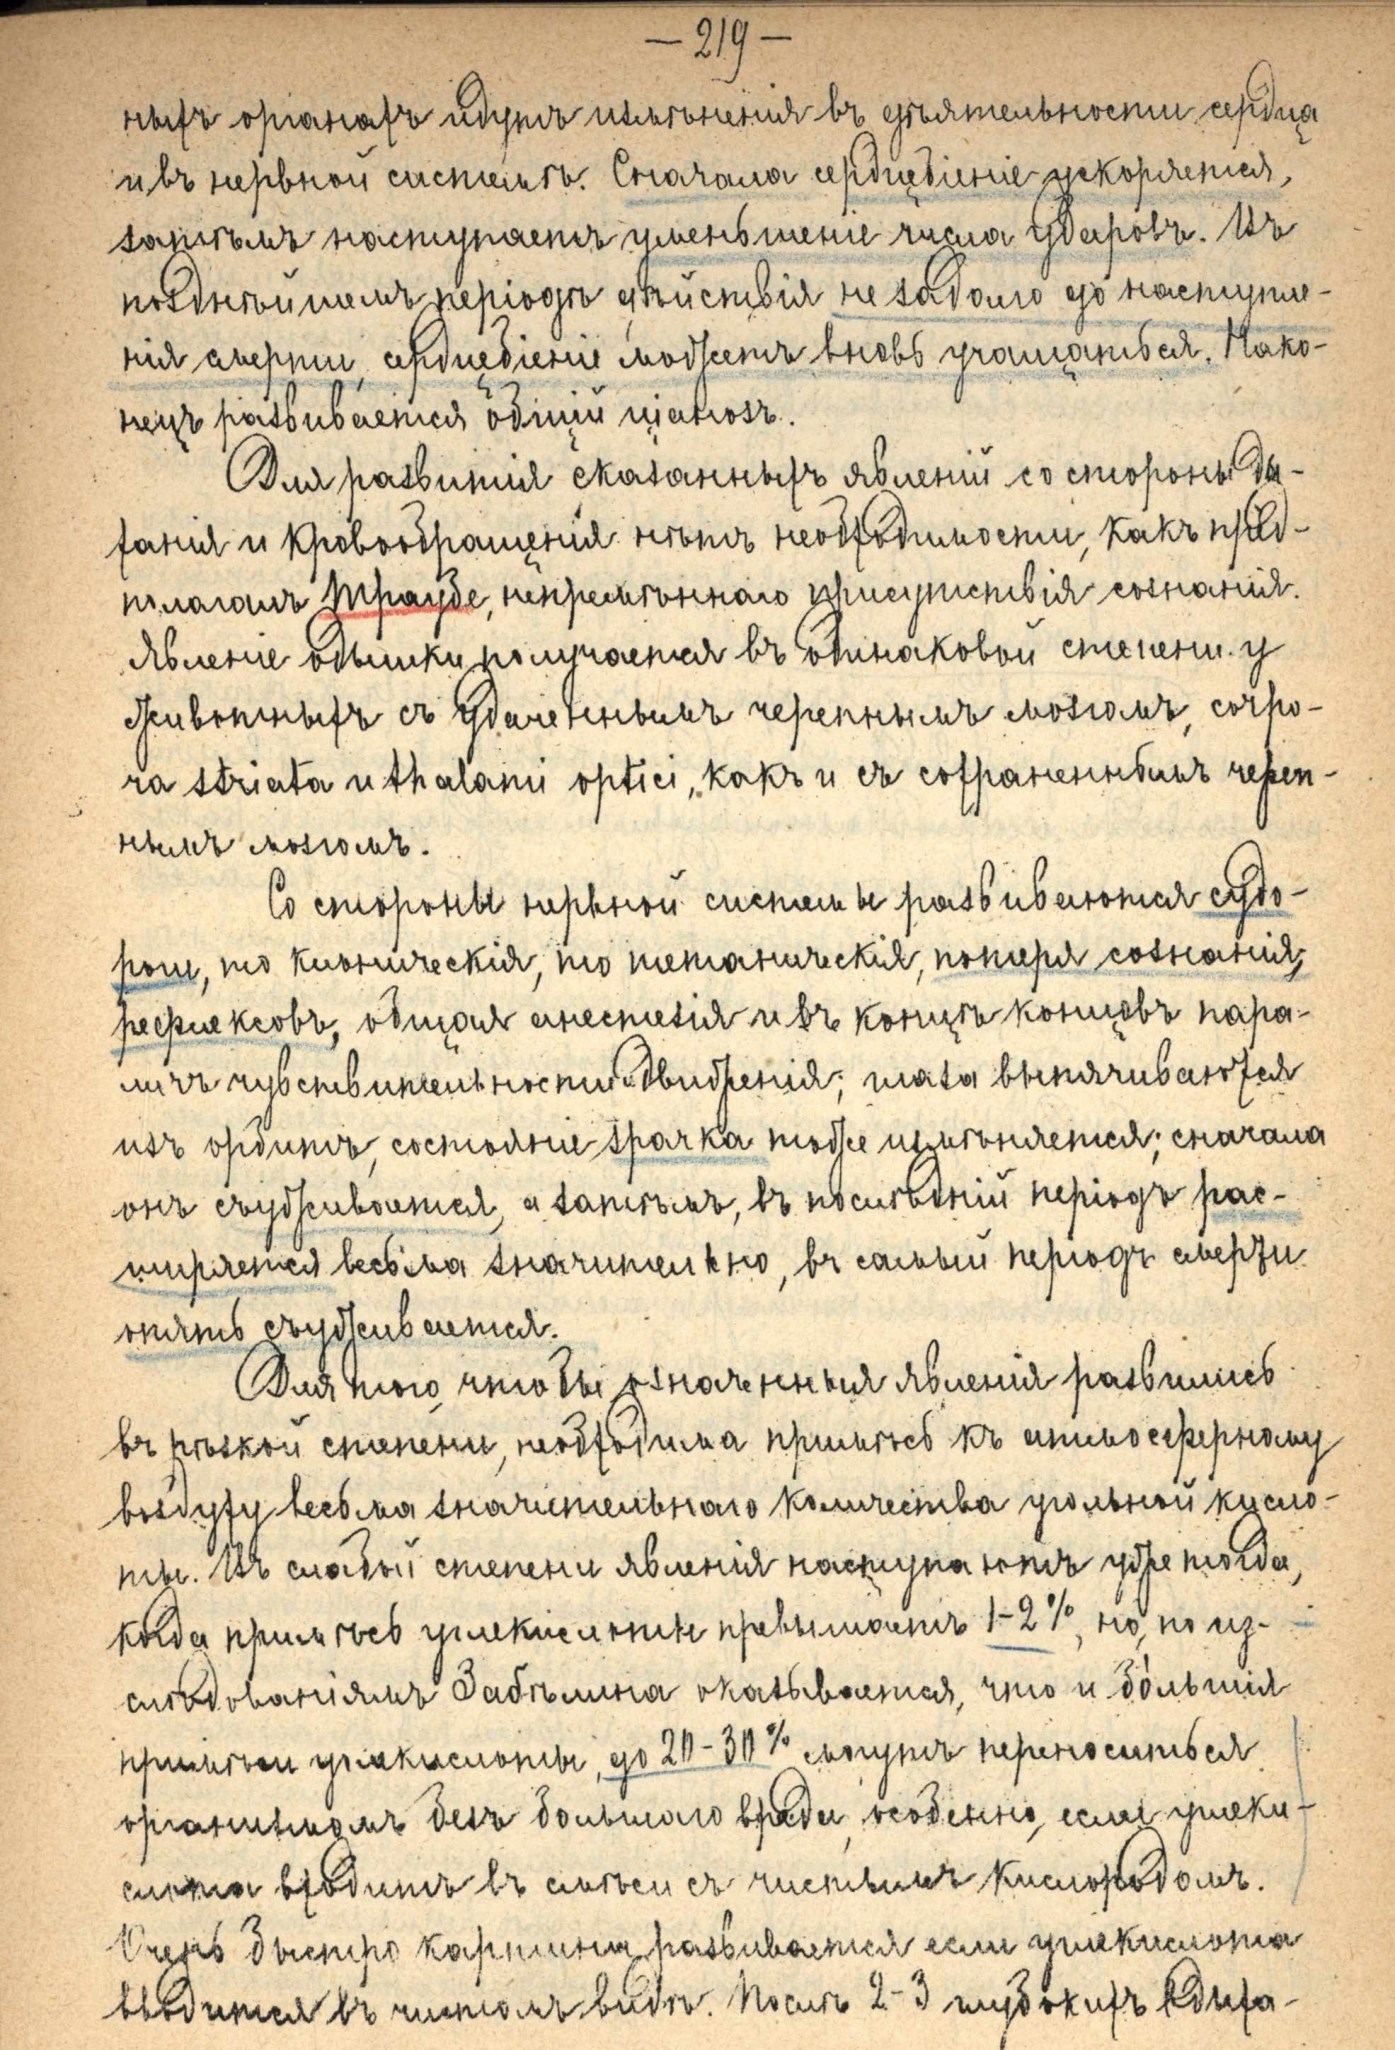 — 219 —
ныхъ органахъ идутъ измѣненія въ дѣятельности сердца
и въ нервной системѣ. Сначала сердцебіеніе ускоряется,
затѣмъ наступаетъ уменьшеніе числа ударовъ. Въ
позднѣйшемъ періодѣ дѣйствія не задолго до наступле-
нія смерти, сердцебіеніе можетъ вновь учащаться. Нако-
нецъ развивается общій ціанозъ.
Для развитія сказанныхъ явленій со стороны ды-
ханія и кровообращенія нѣтъ необходимости, какъ пред-
полагалъ Траубе, непремѣннаго присутствія сознанія.
Явленіе одышки получается въ одинаковой степени у
животныхъ съ удаленнымъ черепнымъ мозгомъ, corpo-
ra striata и thalami optici, какъ и съ сохраненнымъ череп-
нымъ мозгомъ.
Со стороны нервной системы развиваются судо-
роги, то клоническія, то тетаническія, потеря сознанія,
рефлексовъ, общая анестезія и въ концѣ концовъ пара-
личъ чувствительности и движенія; глаза выпячиваются
изъ орбитъ, состояніе зрачка тоже измѣняется; сначала
онъ съуживается, а затѣмъ, въ послѣдній періодъ рас-
ширяется весьма значительно, въ самый періодъ смерти
опять съуживается.
Для того, чтобы означенныя явленія развились
въ рѣзкой степени, необходима примѣсь къ атмосферному
воздуху весьма значительнаго количества угольной кисло-
ты. Въ слабой степени явленія наступаютъ уже тогда,
когда примѣсь углекислоты превышаетъ 1-2%, но, по из-
слѣдованіямъ Забѣлина оказывается, что и бóльшія
примѣси углекислоты, до 20-30% могутъ переноситься
организмомъ безъ большаго вреда, особенно, если углеки-
слота входитъ въ смѣси съ чистымъ кислородомъ.
Очень быстро картина развивается если углекислота
вводится въ чистомъ видѣ. Послѣ 2-3 глубокихъ вдыха-